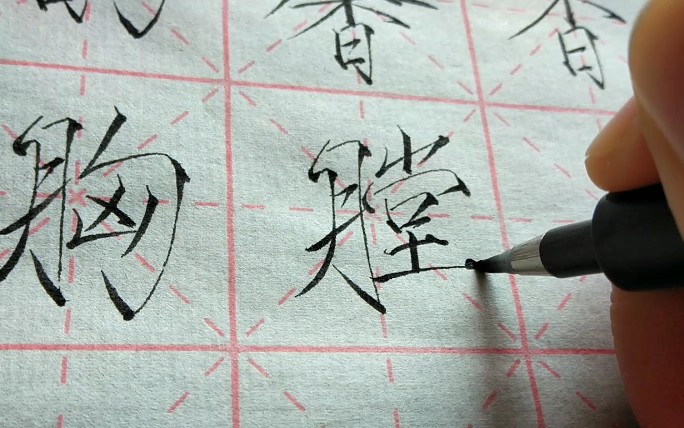 香 香
胸 膛